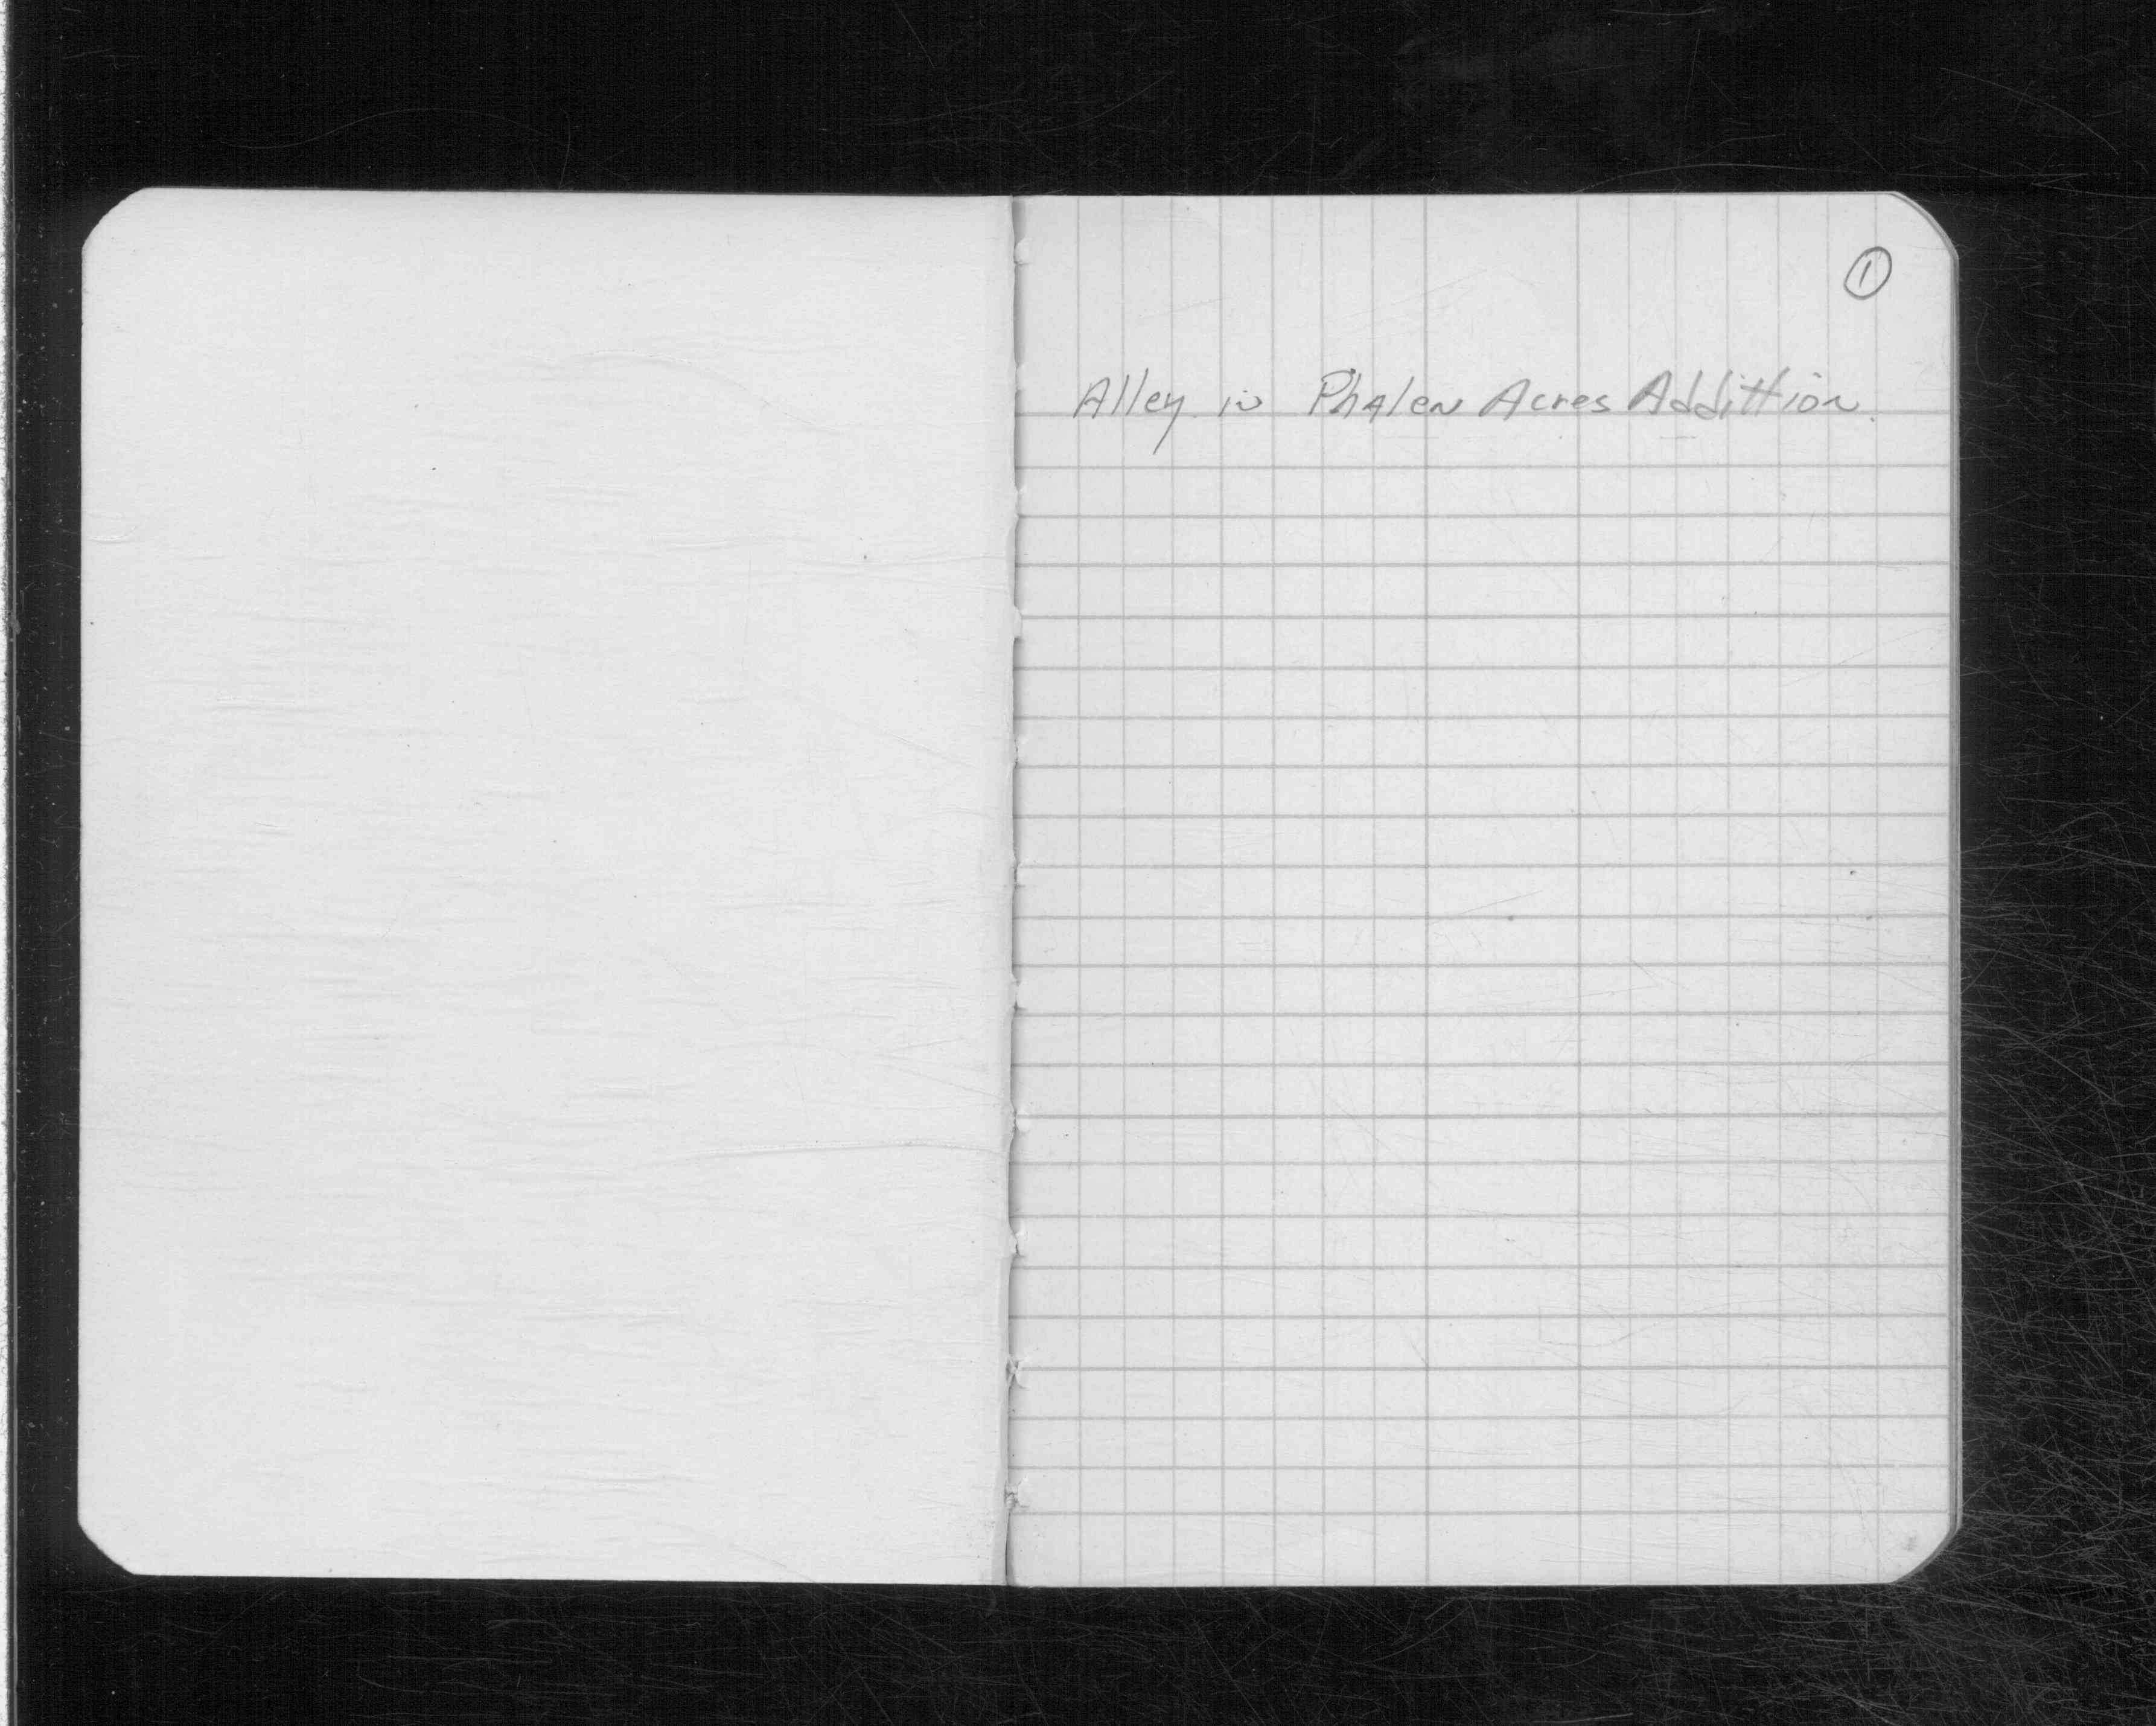 1
Alley in Phalen Acres Addittion